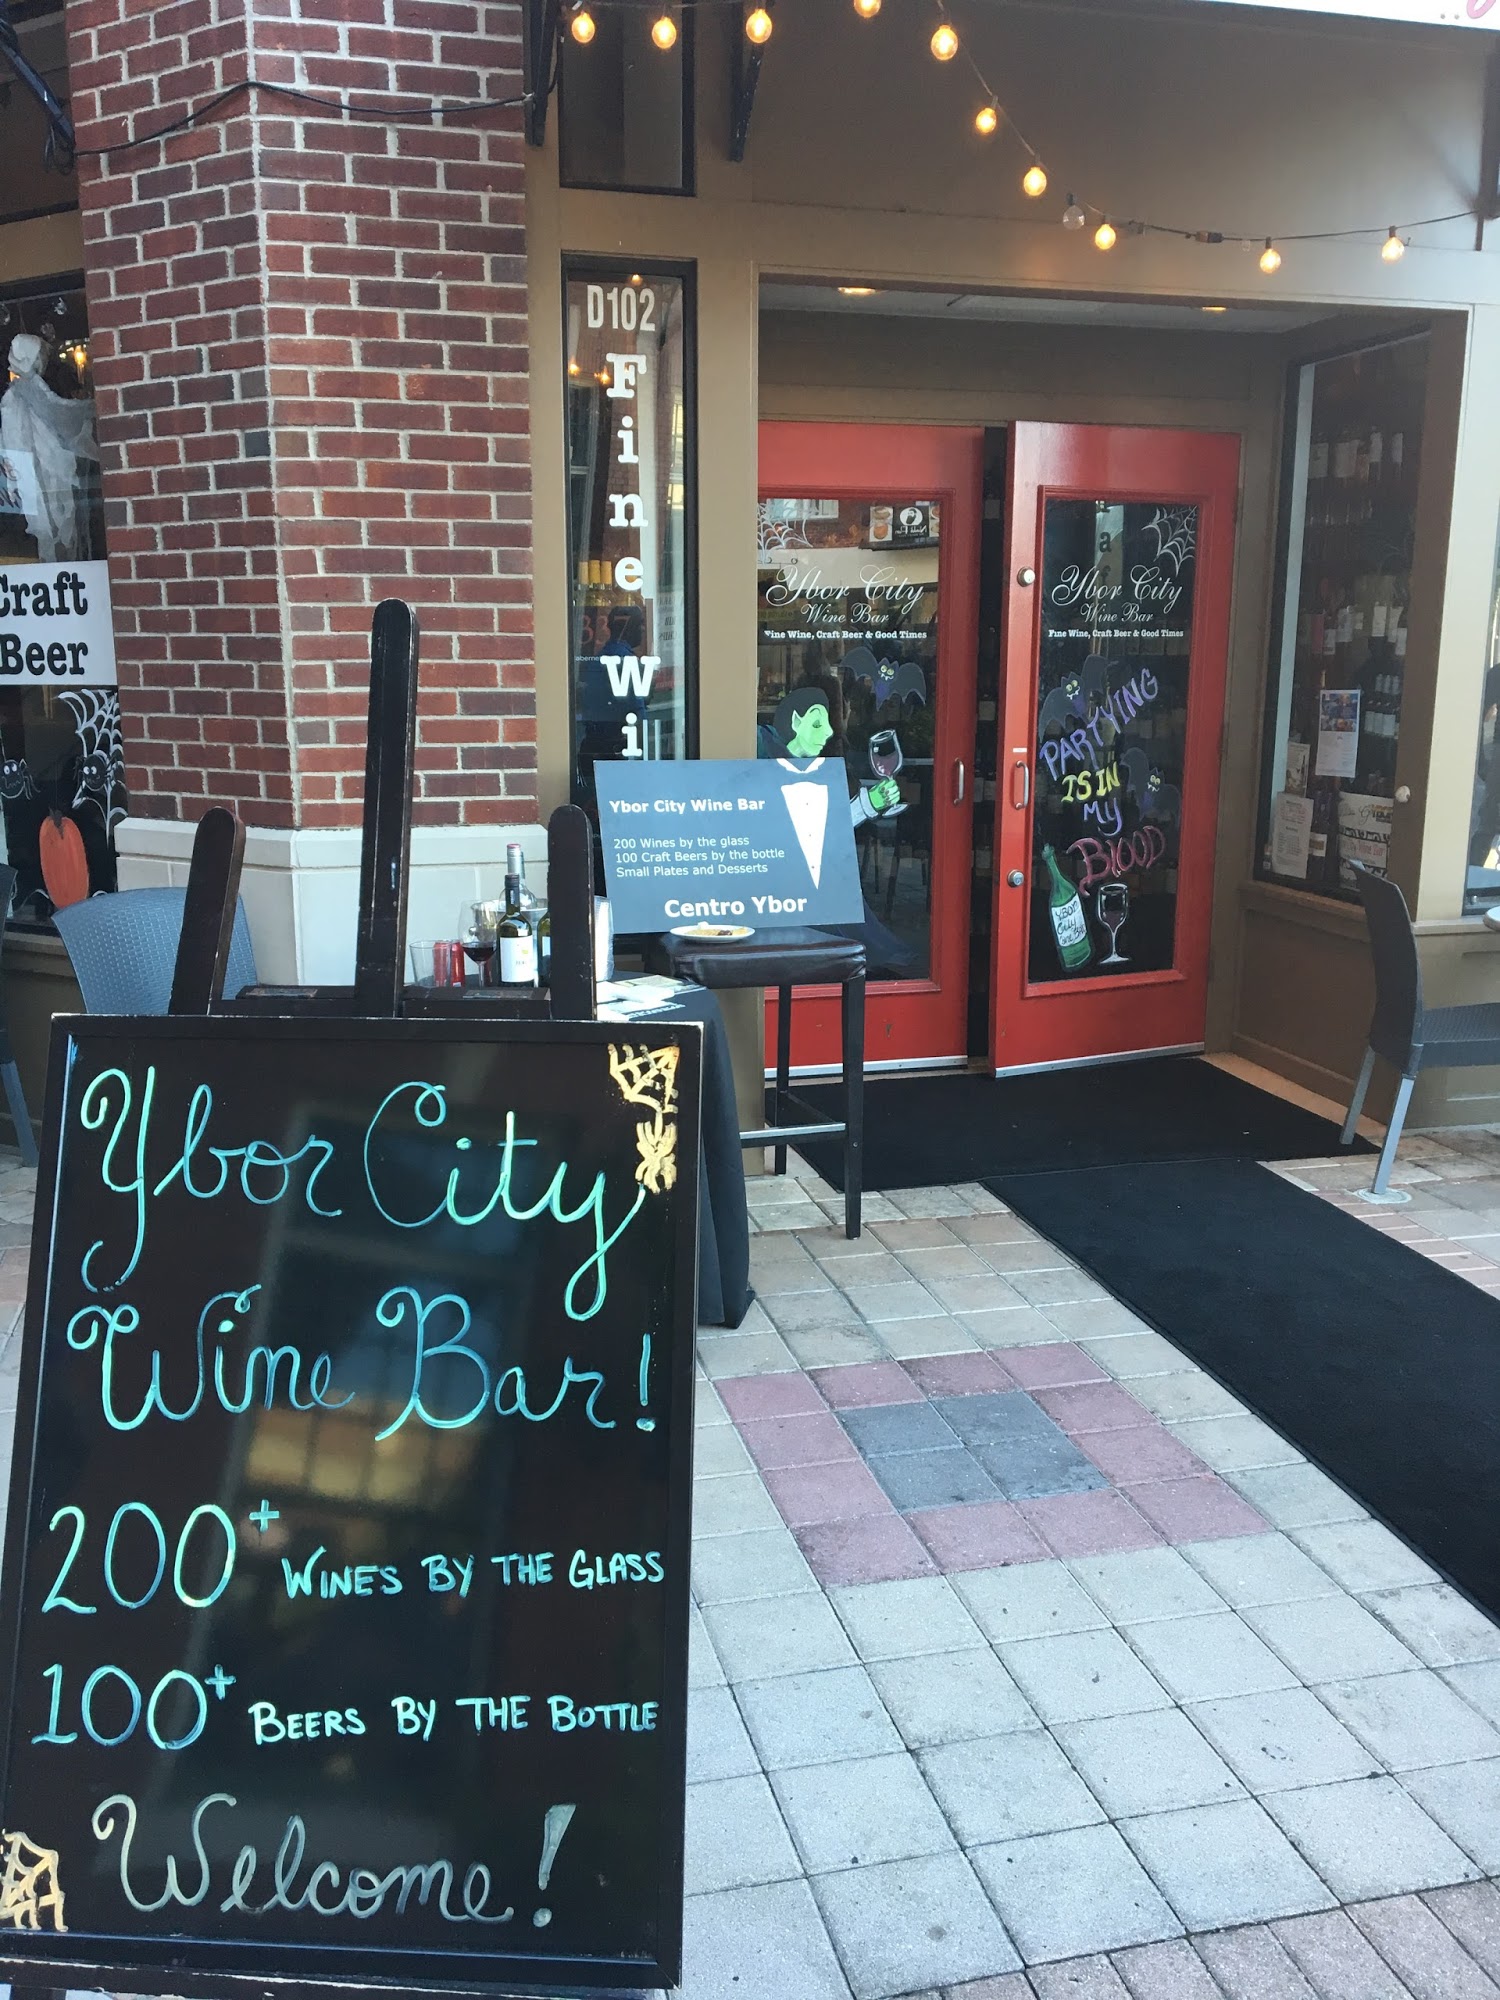 D102
Fine Wi
Craft
Beer
Ybor City
Wine Bar
Fine Wine, Craft Beer & Good Times
Ybor City
Wine Bar
Fine Wine, Craft Beer & Good Times
PARTYING
IS IN
MY
BLOOD
YBOR
City
Wine Bar
Ybor City Wine Bar
200 Wines by the glass
100 Craft Beers by the bottle
Small Plates and Desserts
Centro Ybor
337
Ybor City
Wine Bar!
200+ WINES BY THE GLASS
100+ BEERS BY THE BOTTLE
Welcome!